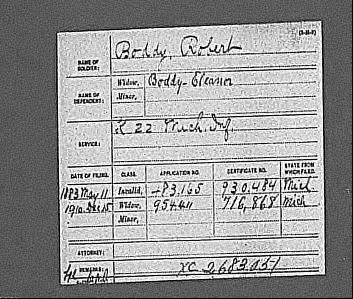 (3-111)
NAME OF SOLDIER: Boddy, Robert
NAME OF DEPENDENT: Widow, Boddy Eleanor
Minor,
SERVICE: K 22 Mich. Inf.
DATE OF FILING. CLASS. APPLICATION NO. CERTIFICATE NO. STATE FROM WHICH FILED.
1883 May 11 Invalid, 483.165 930.484 Mich.
1910. Dec 15 Widow, 954411 716,868 Mich
Minor,
ATTORNEY:
REMARKS: XC 2683.051